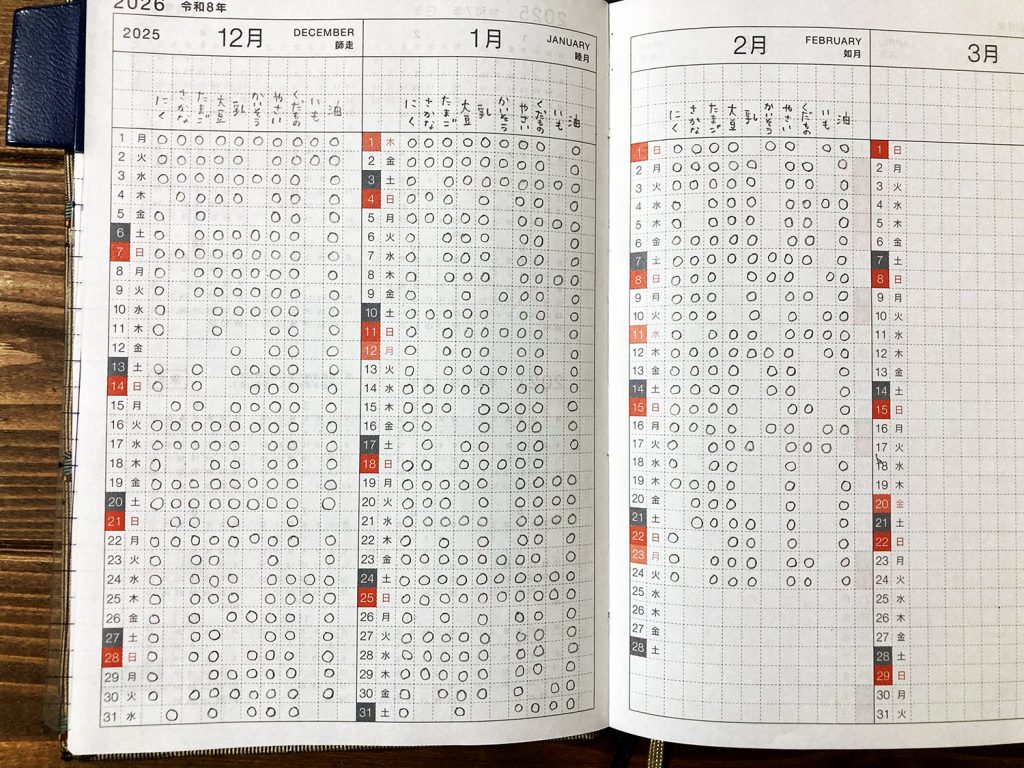 2026 令和8年
2025 12月 DECEMBER 師走
にく さかな たまご 大豆 乳 かいそう やさい くだもの いも 油
1 月
2 火
3 水
4 木
5 金
6 土
7 日
8 月
9 火
10 水
11 木
12 金
13 土
14 日
15 月
16 火
17 水
18 木
19 金
20 土
21 日
22 月
23 火
24 水
25 木
26 金
27 土
28 日
29 月
30 火
31 水
1月 JANUARY 睦月
にく さかな たまご 大豆 乳 かいそう やさい くだもの いも 油
1 木
2 金
3 土
4 日
5 月
6 火
7 水
8 木
9 金
10 土
11 日
12 月
13 火
14 水
15 木
16 金
17 土
18 日
19 月
20 火
21 水
22 木
23 金
24 土
25 日
26 月
27 火
28 水
29 木
30 金
31 土
2月 FEBRUARY 如月
にく さかな たまご 大豆 乳 かいそう やさい くだもの いも 油
1 日
2 月
3 火
4 水
5 木
6 金
7 土
8 日
9 月
10 火
11 水
12 木
13 金
14 土
15 日
16 月
17 火
18 水
19 木
20 金
21 土
22 日
23 月
24 火
25 水
26 木
27 金
28 土
3月
1 日
2 月
3 火
4 水
5 木
6 金
7 土
8 日
9 月
10 火
11 水
12 木
13 金
14 土
15 日
16 月
17 火
18 水
19 木
20 金
21 土
22 日
23 月
24 火
25 水
26 木
27 金
28 土
29 日
30 月
31 火